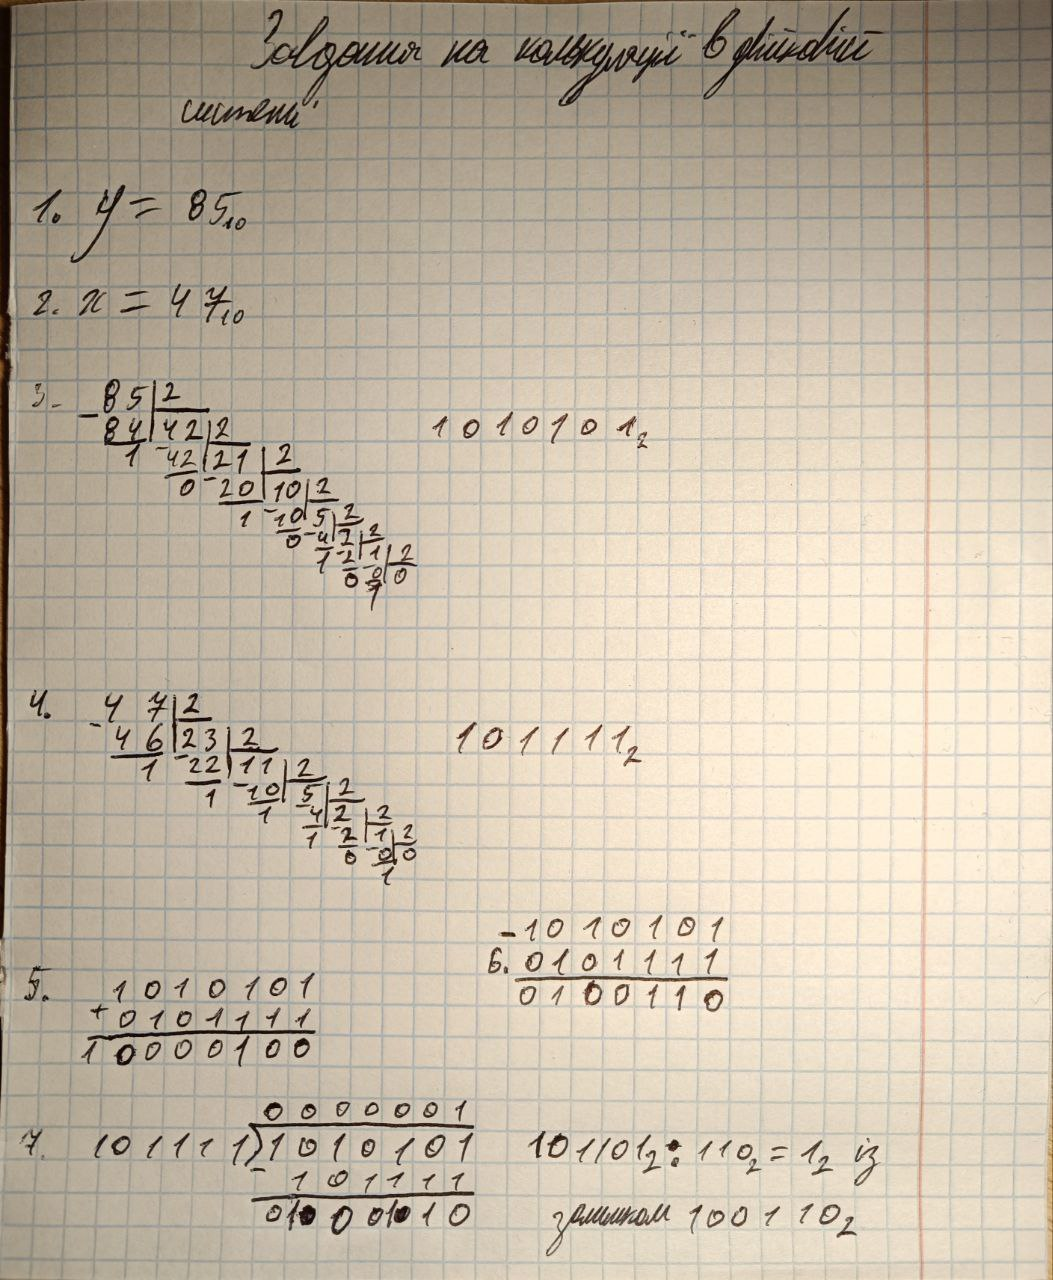 Завдання на калькуляції в двійковій
системі
1. y = 85₁₀
2. x = 47₁₀
3. 85 | 2
- 84 | 42 | 2
1 - 42 | 21 | 2
0 - 20 | 10 | 2
1 - 10 | 5 | 2
0 - 4 | 2 | 2
1 - 2 | 1 | 2
0 - 0 | 0
1
1010101₂
4. 47 | 2
- 46 | 23 | 2
1 - 22 | 11 | 2
1 - 10 | 5 | 2
1 - 4 | 2 | 2
1 - 2 | 1 | 2
0 - 0 | 0
1
101111₂
5. 1010101
+ 0101111
10000100
- 1010101
6. 0101111
0100110
0000001
7. 101111)1010101
- 101111
0100110
101101₂ : 110₂ = 1₂ із
залишком 100110₂